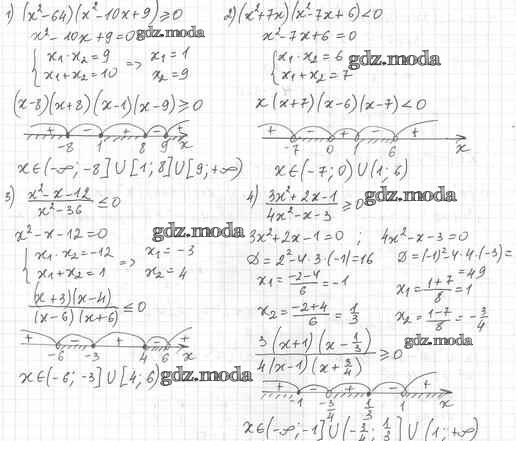 1) (x²-64)(x²-10x+9)≥0
x²-10x+9=0 gdz.moda
{ x₁·x₂=9
x₁+x₂=10 => x₁=1
x₂=9
(x-8)(x+8)(x-1)(x-9)≥0
+ - + - +
-8 1 8 9 x
x∈(-∞;-8]U[1;8]U[9;+∞)
2) (x²+7x)(x²-7x+6)<0
x²-7x+6=0
{ x₁·x₂=6
x₁+x₂=7
gdz.moda
x(x+7)(x-6)(x-7)<0
+ - + - +
-7 0 1 6 x
x∈(-7;0)U(1;6)
3) x²-x-12 / x²-36 ≤0
x²-x-12=0
gdz.moda
{ x₁·x₂=-12
x₁+x₂=1 => x₁=-3
x₂=4
(x+3)(x-4) / (x-6)(x+6) ≤0
+ - + - +
-6 -3 4 6 x
x∈(-6;-3]U[4;6) gdz.moda
4) 3x²+2x-1 / 4x²-x-3 ≥0 gdz.moda
3x²+2x-1=0 ; 4x²-x-3=0
D=2²-4·3·(-1)=16 D=(-1)²-4·4·(-3)=
=49
x₁=-2-4/6=-1 x₁=1+7/8=1
x₂=-2+4/6=1/3 x₂=1-7/8=-3/4
gdz.moda
3(x+1)(x-1/3) / 4(x-1)(x+3/4) ≥0
+ - + - +
-1 -3/4 1/3 1 x
x∈(-∞;-1]U(-3/4;1/3]U(1;+∞)